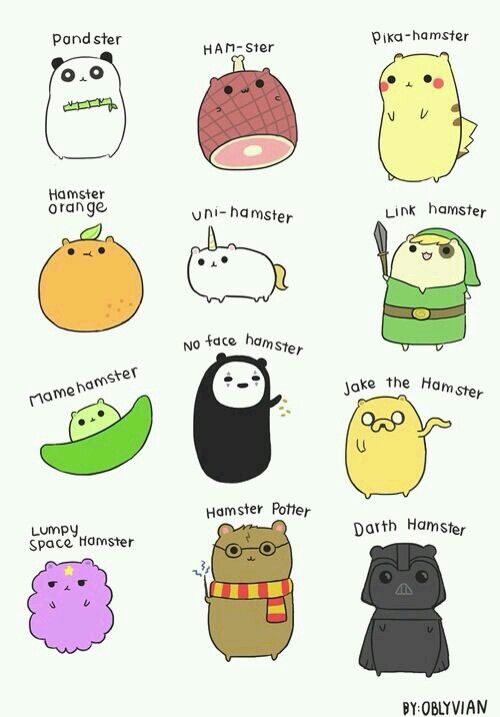 Pandster
HAM-ster
Pika-hamster
Hamster
orange
uni-hamster
Link hamster
Mamehamster
No face hamster
Jake the Hamster
Lumpy
Space Hamster
Hamster Potter
Darth Hamster
BY:OBLYVIAN